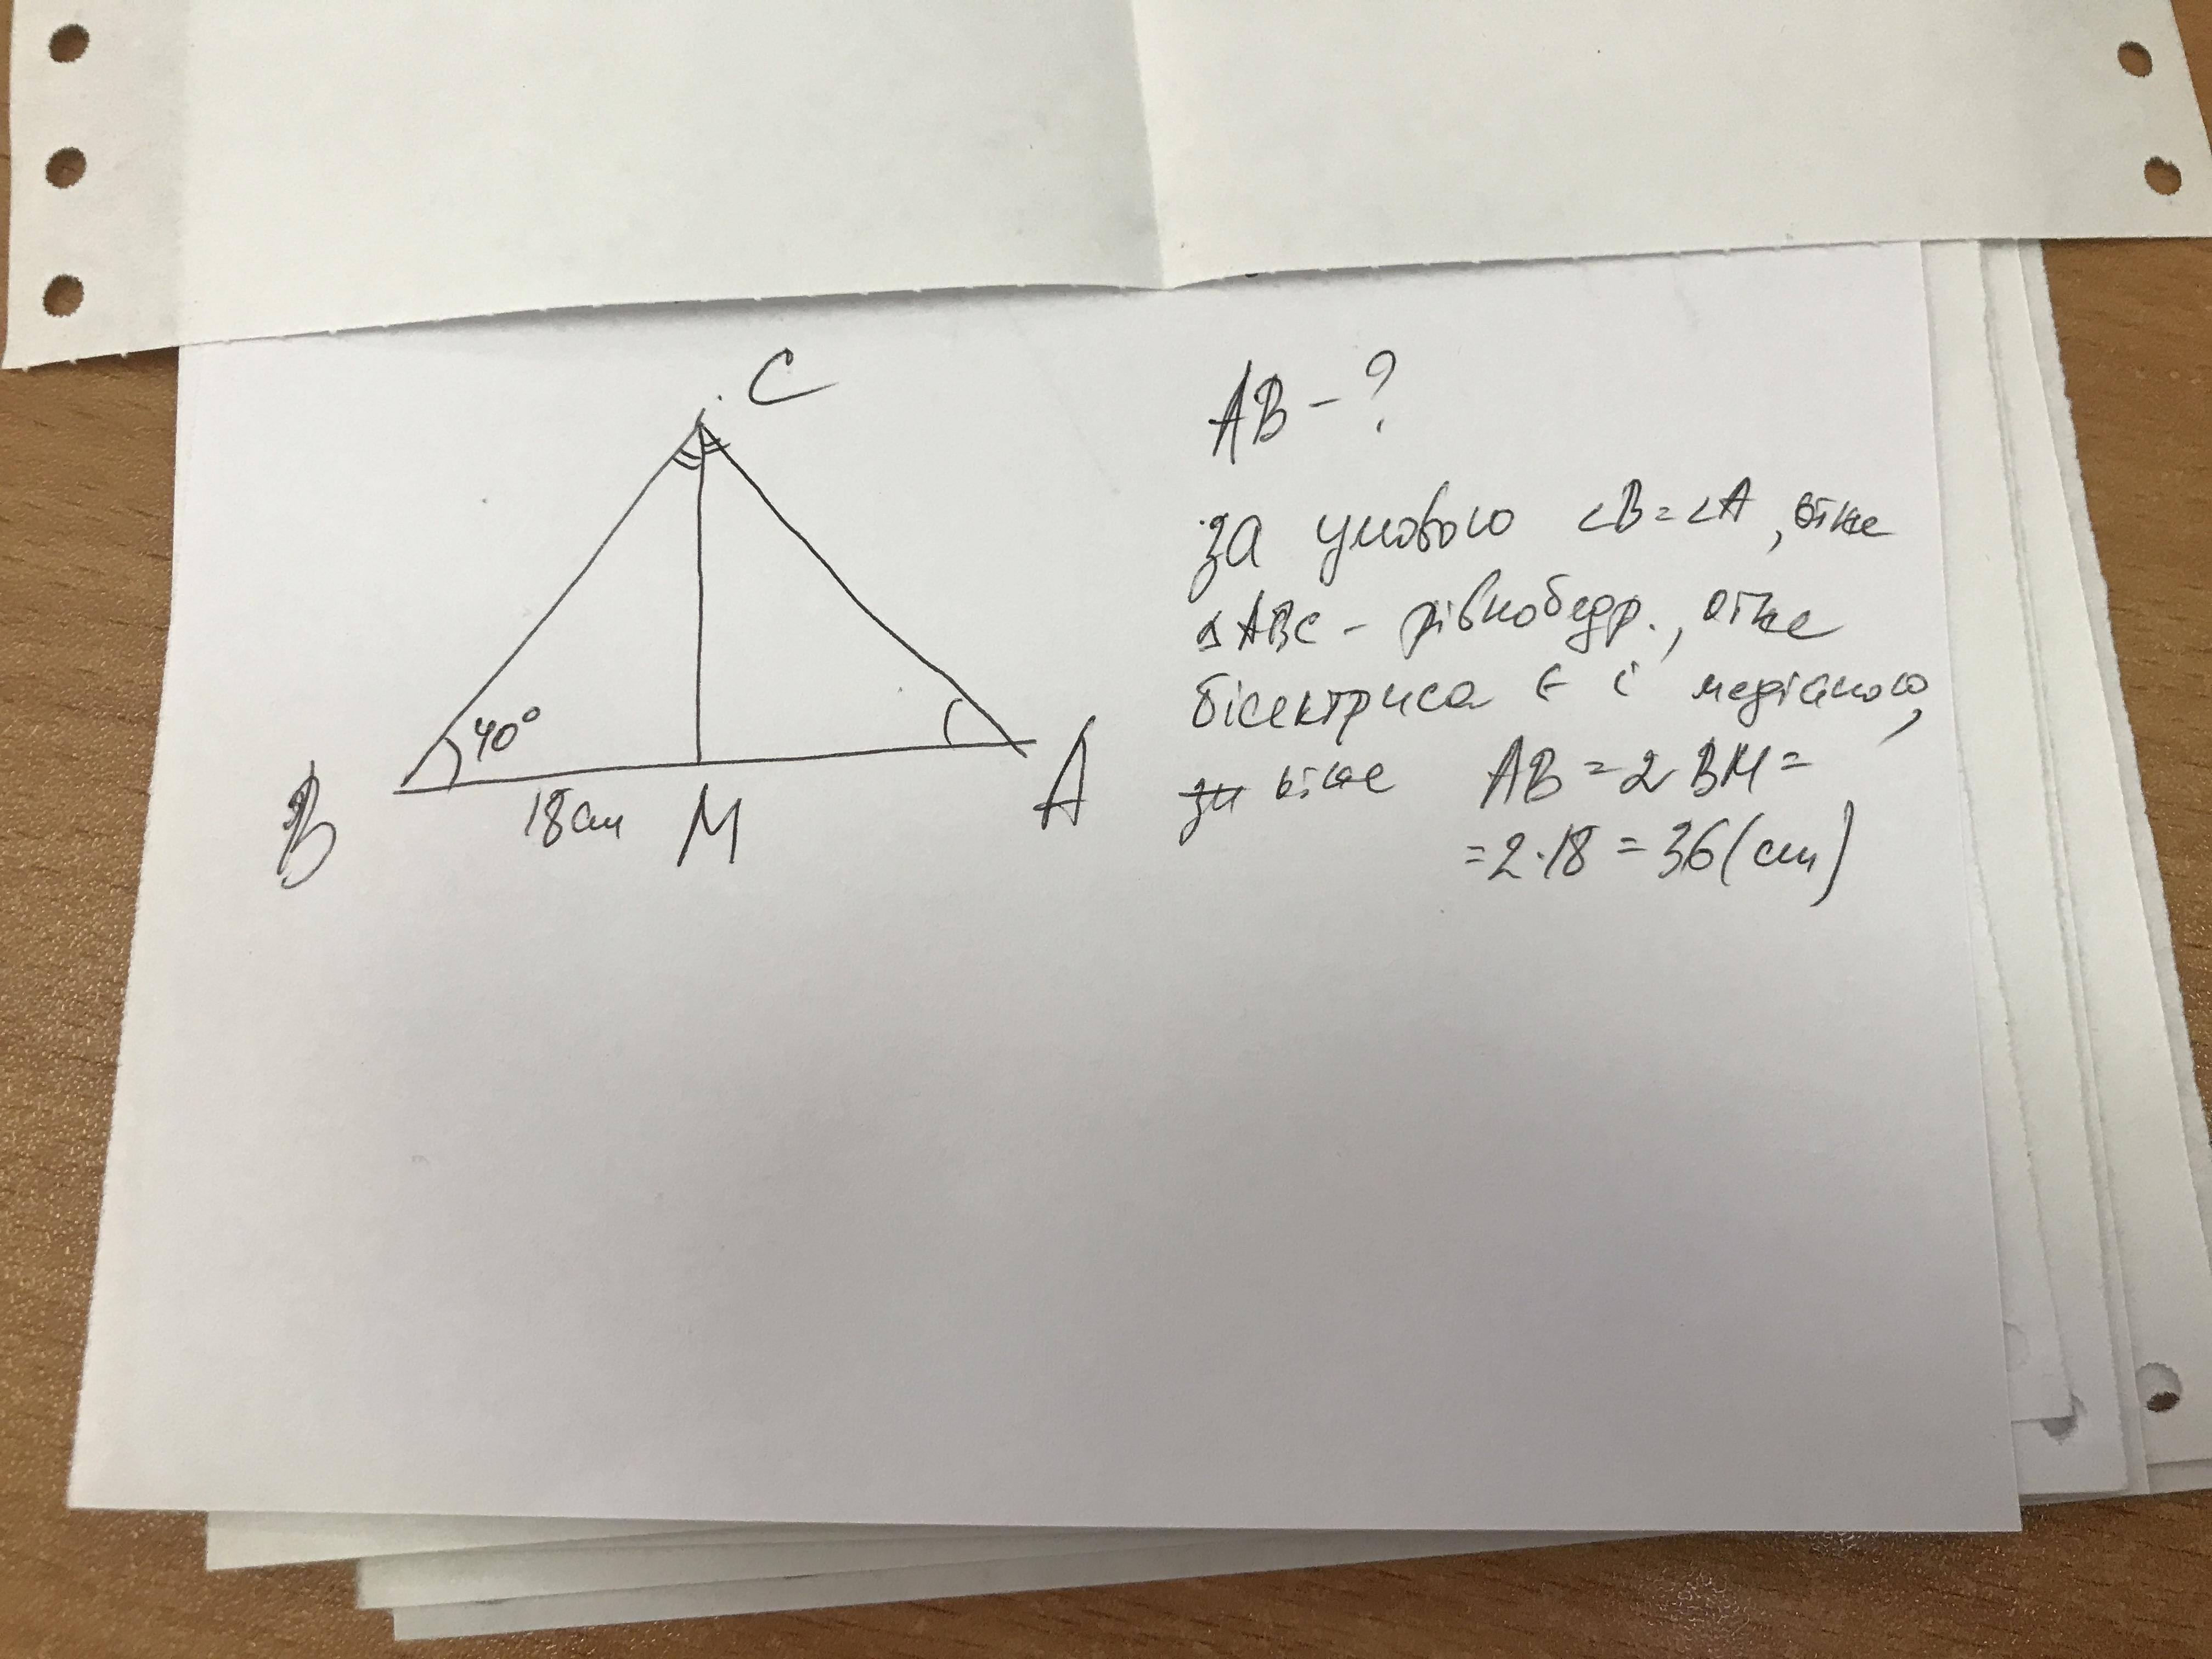 C
40°
B
18см
M
A
AB - ?
за умовою ∠B=∠A, отже
△ABC - рівнобедр., отже
бісектриса є і медіаною,
отже AB = 2 BM =
= 2·18 = 36 (см)